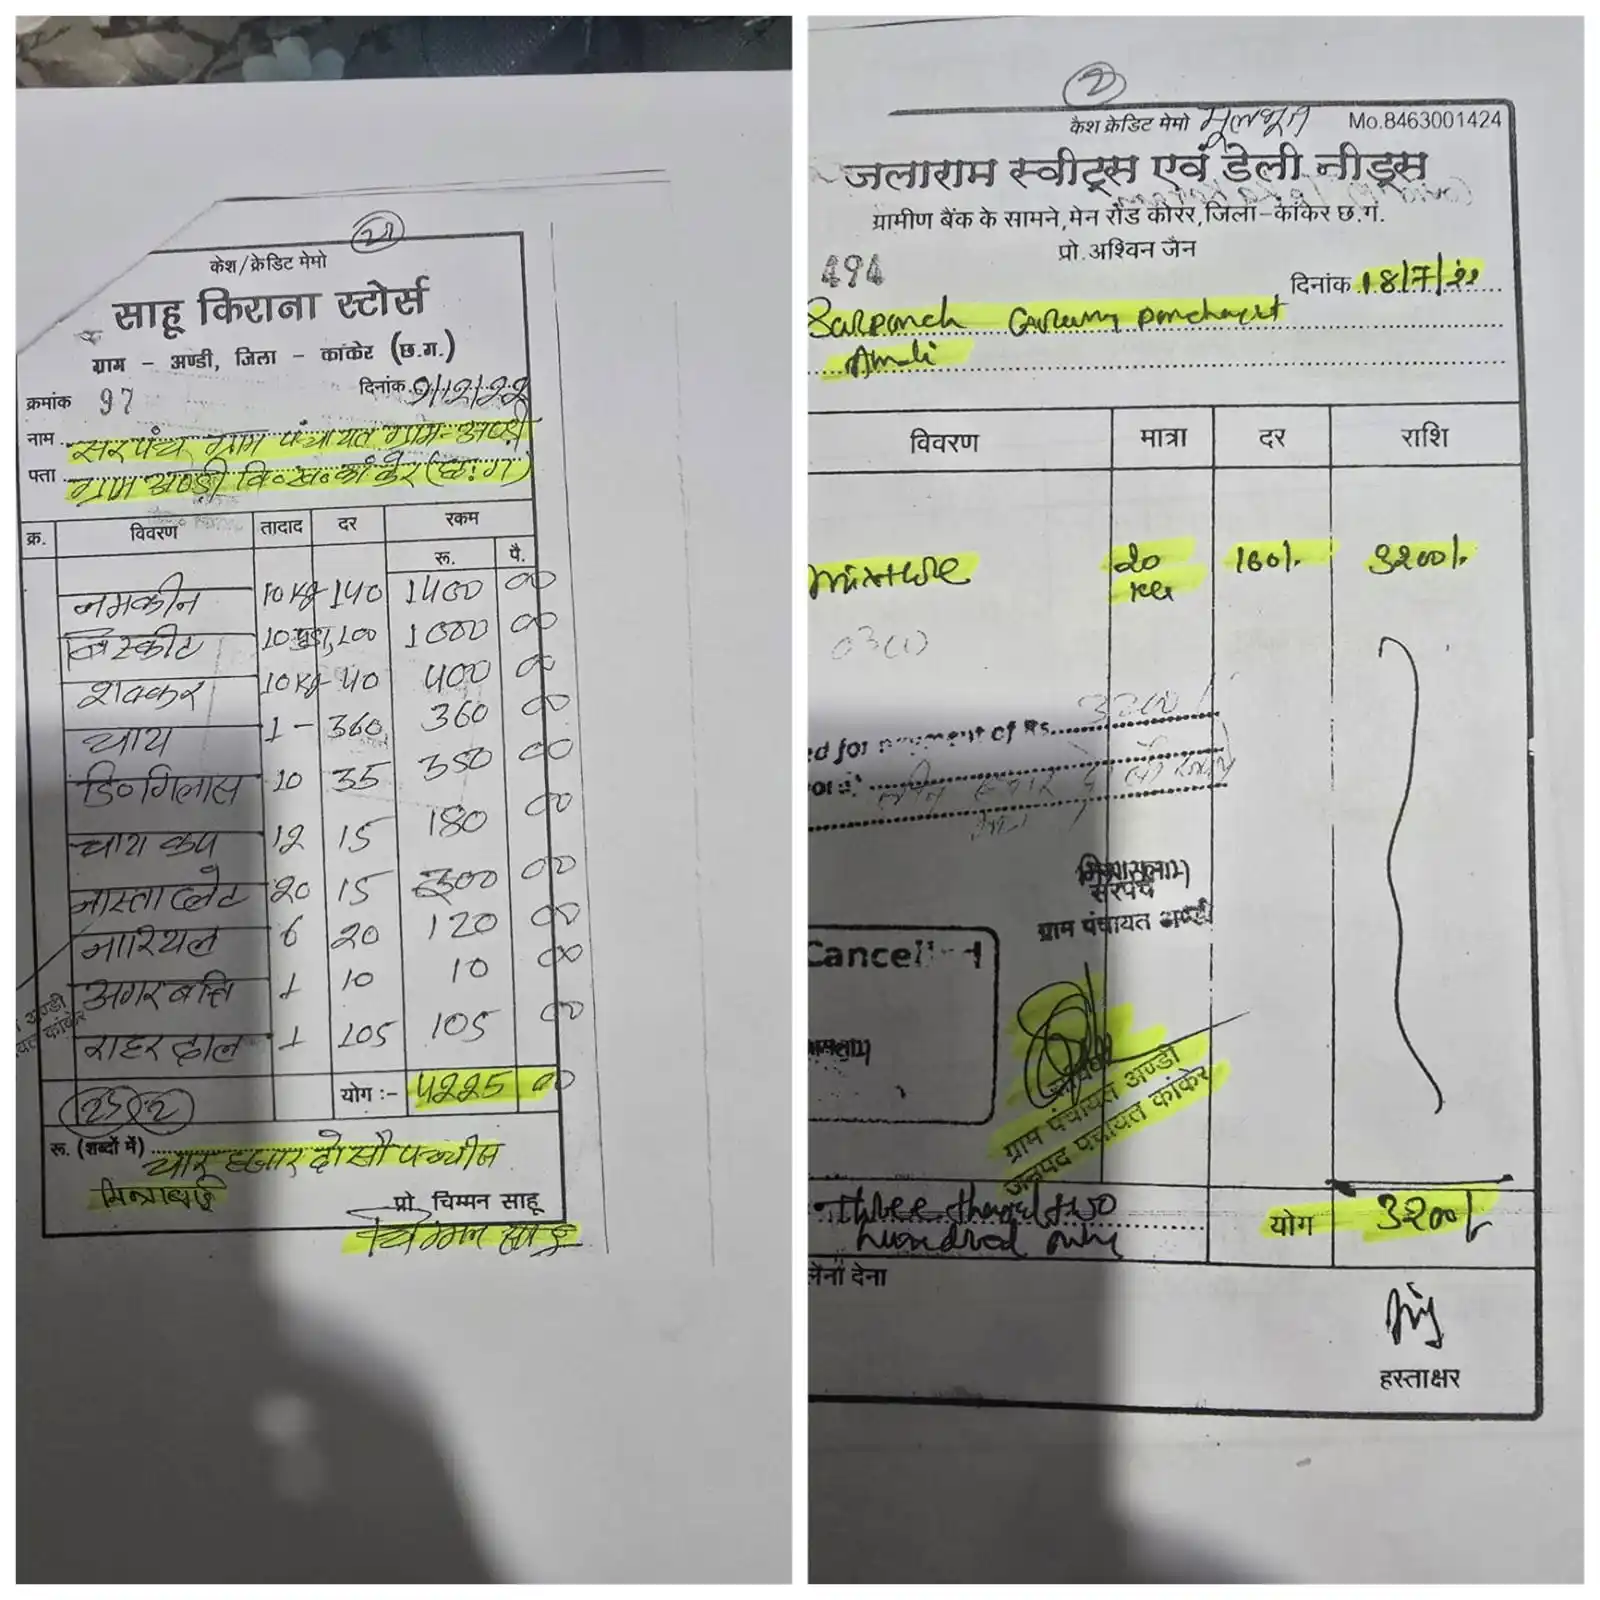 21
केश/क्रेडिट मेमो
साहू किराना स्टोर्स
ग्राम - अण्डी, जिला - कांकेर (छ.ग.)
क्रमांक 97 दिनांक 9/12/22
नाम सरपंच ग्राम पंचायत ग्राम-अण्डी
पता ग्राम अण्डी वि०ख० कांकेर (छ.ग)
क्र. विवरण तादाद दर रकम
रू. पै.
नमकीन 10 kg 140 1400 00
बिस्कीट 10 100 1000 00
शक्कर 10 kg 40 400 00
चाय 1 - 360 360 00
डि० गिलास 10 35 350 00
चाय कप 12 15 180 00
नास्ता प्लेट 20 15 300 00
नारियल 6 20 120 00
अगरबत्ति 1 10 10 00
राहर दाल 1 105 105 00
25 2 योग :- 4225 00
रू. (शब्दों में) चार हजार दो सौ पच्चीस
प्रो. चिम्मन साहू
चिम्मन साहू
2
केश क्रेडिट मेमो मूलभूत Mo.8463001424
जलाराम स्वीट्स एवं डेली नीड्स
ग्रामीण बैंक के सामने, मेन रोड कोरर, जिला-कांकेर छ.ग.
प्रो. अश्विन जैन
494 दिनांक 18/7/22
Sarpanch Gram panchayat
विवरण मात्रा दर राशि
mixture 20 160/. 3200/.
kg
ed for payment of Rs. 3200/
सरपंच
ग्राम पंचायत अण्डी
Cancelled
ग्राम पंचायत अण्डी
जनपद पंचायत कांकेर
three thousand two
hundred only
योग 3200/-
लेना देना
हस्ताक्षर